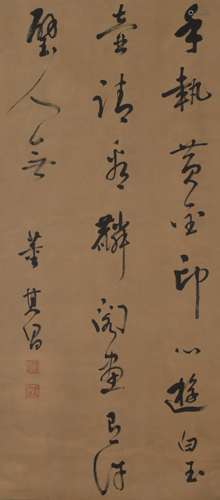 手執黃金印心遊白玉
壺請看麟閣畫得似
璧人無
董其昌